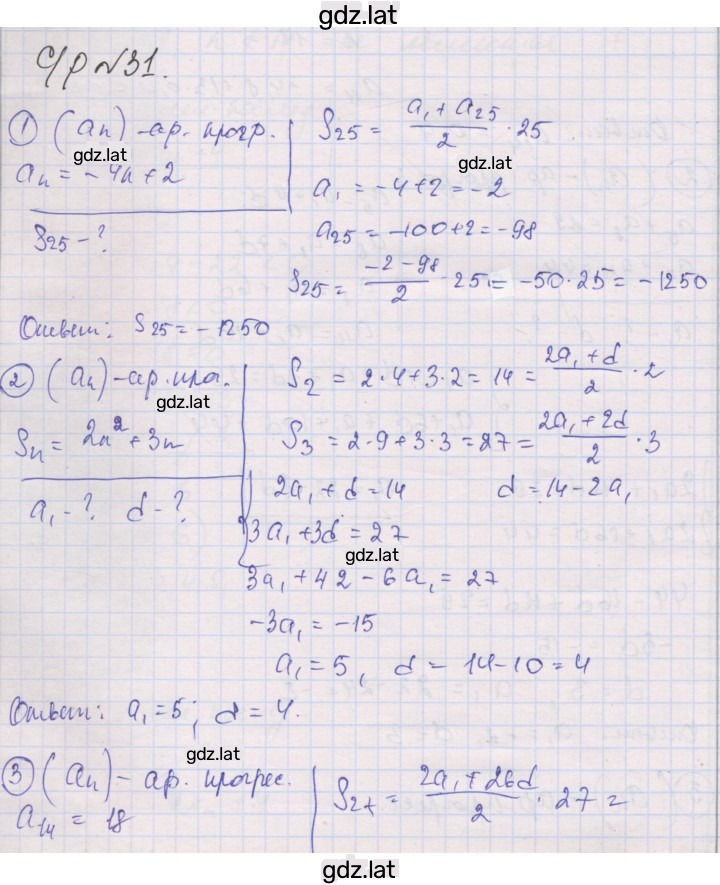 gdz.lat
С/р №31.
① (aₙ) - ар. прогр.
gdz.lat
aₙ = -4n+2
S₂₅ - ?
S₂₅ = (a₁ + a₂₅)/2 · 25
gdz.lat
a₁ = -4+2 = -2
a₂₅ = -100+2 = -98
S₂₅ = (-2-98)/2 · 25 = -50·25 = -1250
Ответ: S₂₅ = -1250
② (aₙ) - ар. про.
gdz.lat
Sₙ = 2n² + 3n
a₁ - ? d - ?
S₂ = 2·4+3·2 = 14 = (2a₁+d)/2 · 2
S₃ = 2·9+3·3 = 27 = (2a₁+2d)/2 · 3
gdz.lat
2a₁ + d = 14 d = 14-2a₁
3a₁ + 3d = 27
gdz.lat
3a₁ + 42 - 6a₁ = 27
-3a₁ = -15
a₁ = 5, d = 14-10 = 4
Ответ: a₁ = 5; d = 4.
gdz.lat
③ (aₙ) - ар. прогрес.
a₁₄ = 18
S₂₇ = (2a₁ + 26d)/2 · 27 =
gdz.lat
gdz.lat